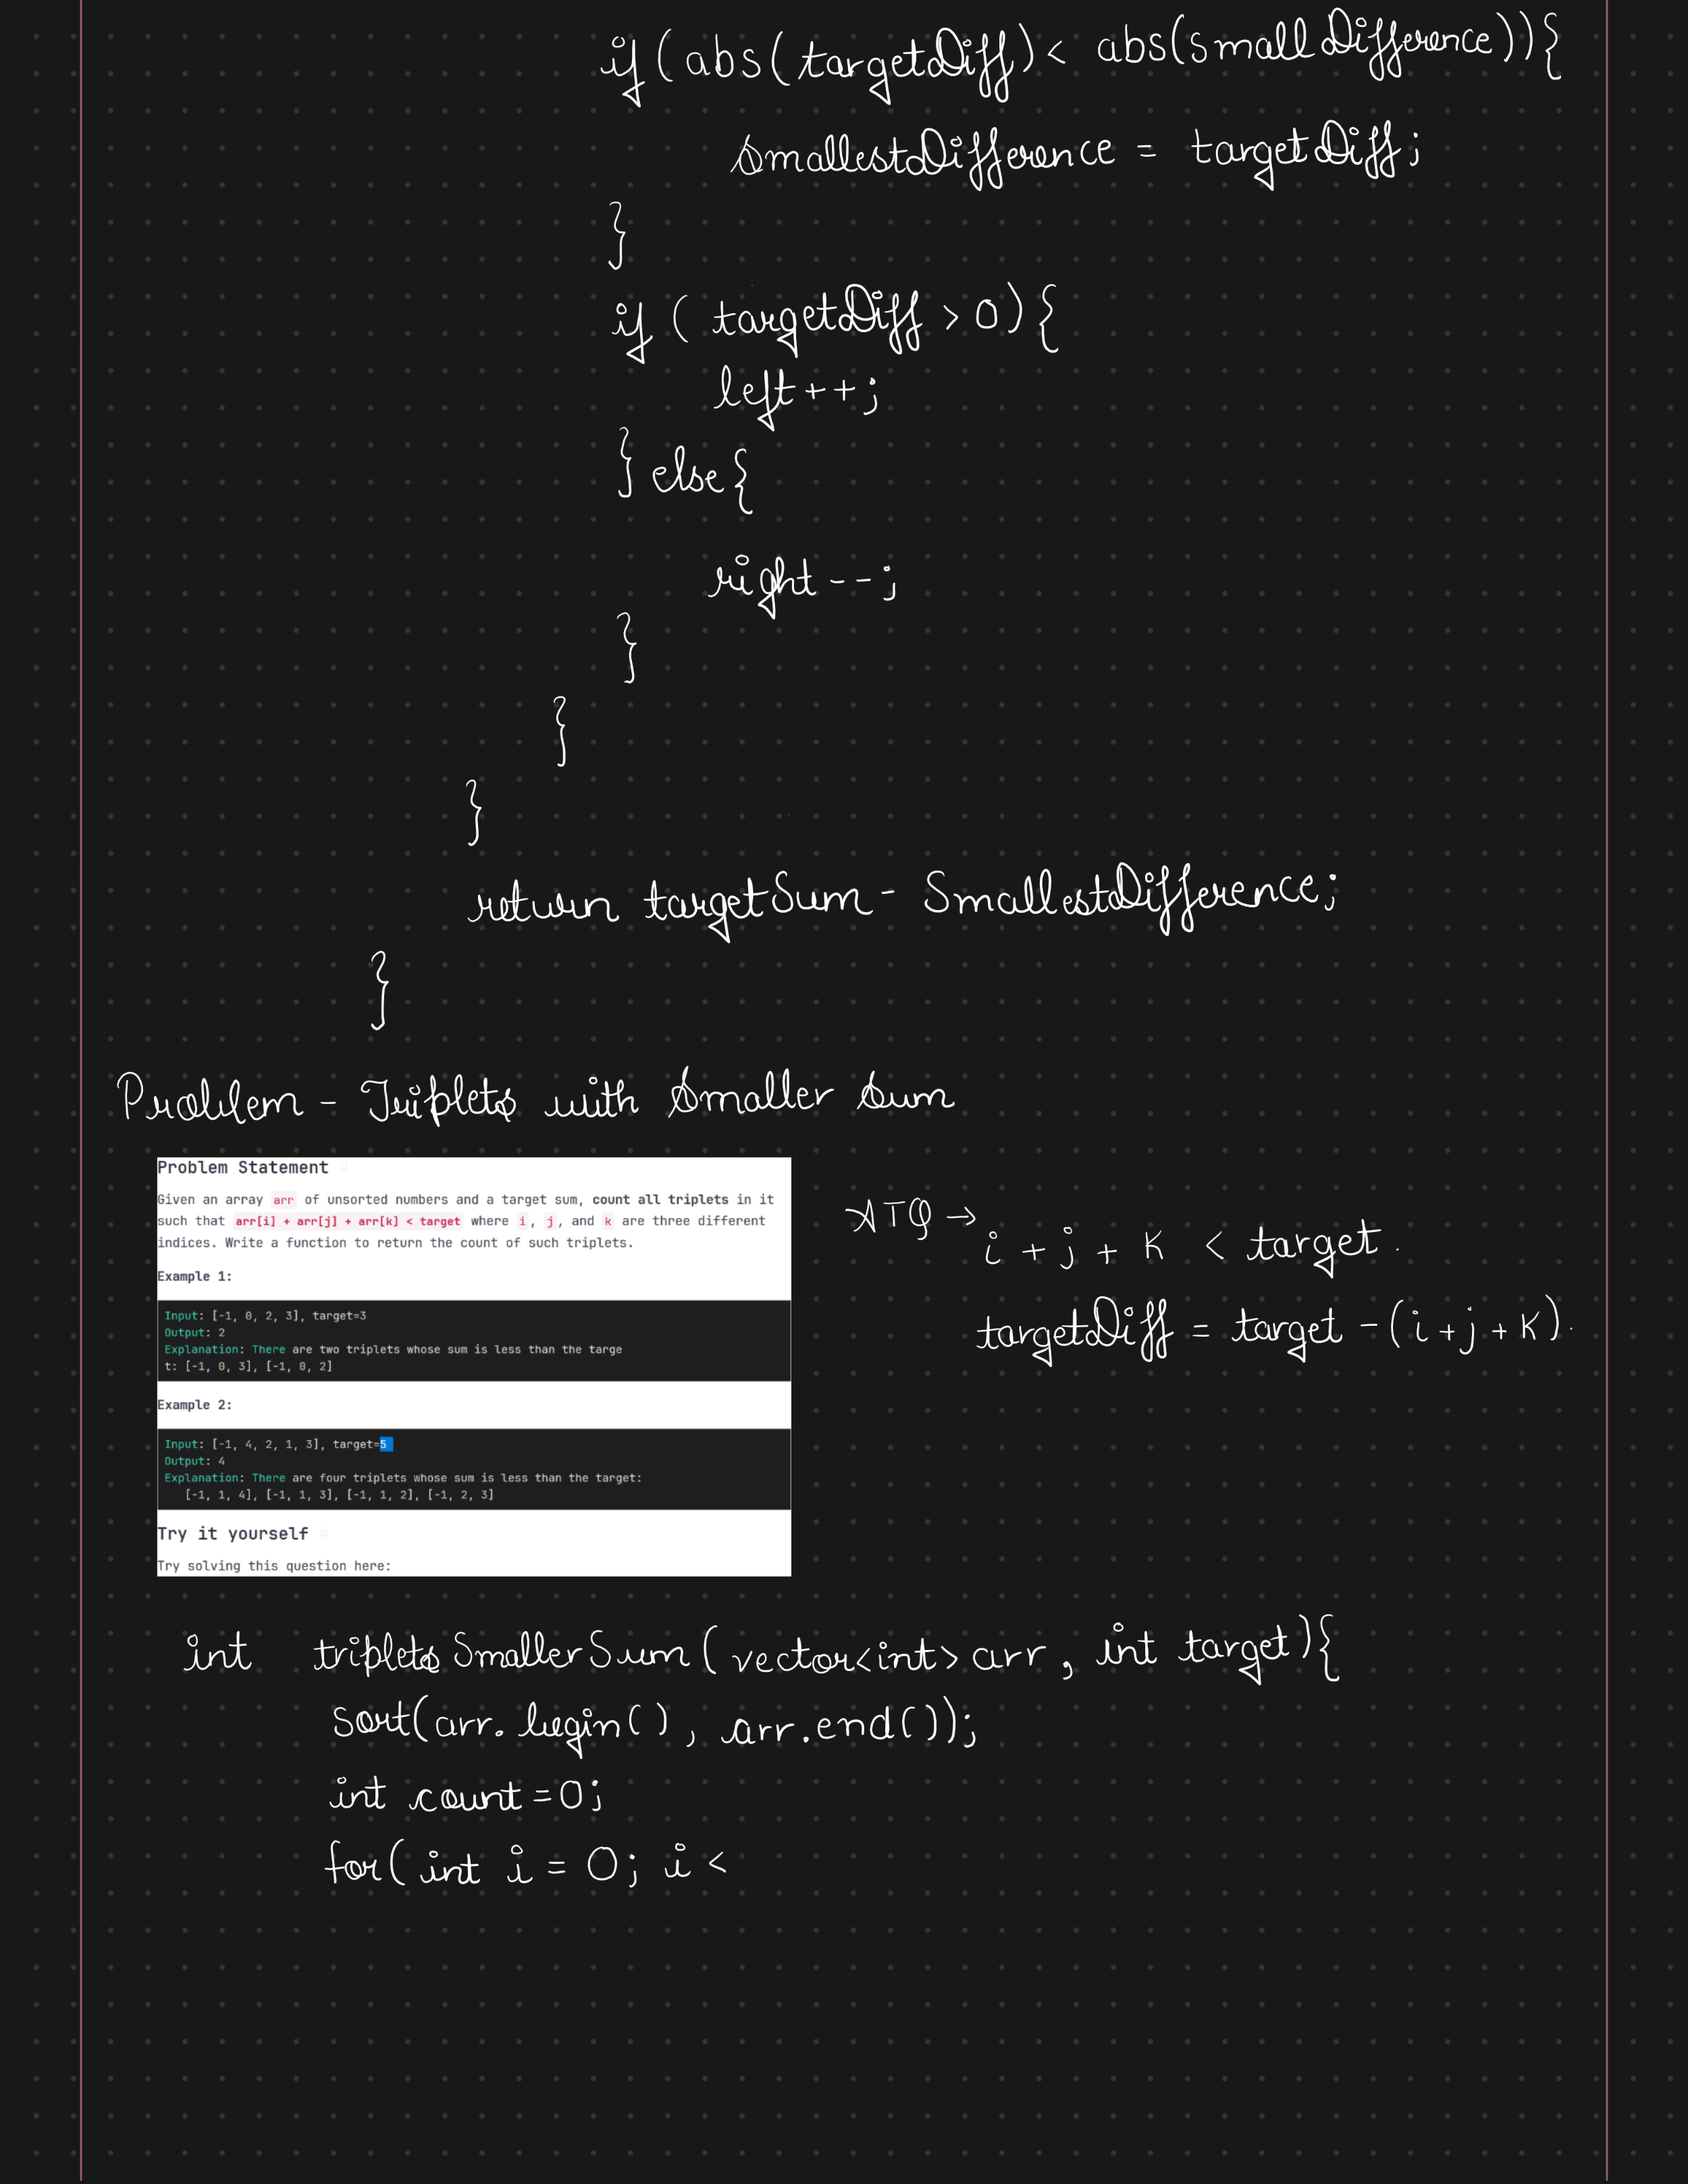 if (abs(targetDiff) < abs(smallDifference)){
smallestDifference = targetDiff;
}
if ( targetDiff > 0) {
left++;
} else {
right--;
}
}
}
return targetSum - SmallestDifference;
}
Problem - Triplets with Smaller Sum
Problem Statement #
Given an array arr of unsorted numbers and a target sum, count all triplets in it
such that arr[i] + arr[j] + arr[k] < target where i, j, and k are three different
indices. Write a function to return the count of such triplets.
Example 1:
Input: [-1, 0, 2, 3], target=3
Output: 2
Explanation: There are two triplets whose sum is less than the targe
t: [-1, 0, 3], [-1, 0, 2]
Example 2:
Input: [-1, 4, 2, 1, 3], target=5
Output: 4
Explanation: There are four triplets whose sum is less than the target:
[-1, 1, 4], [-1, 1, 3], [-1, 1, 2], [-1, 2, 3]
Try it yourself #
Try solving this question here:
ATQ →
i + j + K < target.
targetDiff = target - (i + j + K).
int tripletsSmallerSum ( vector<int> arr, int target){
sort(arr.begin(), arr.end());
int count = 0;
for( int i = 0; i <